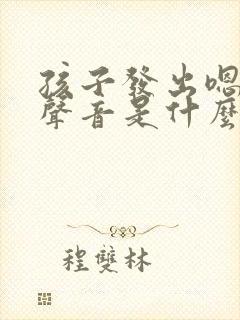 孩子發出嗯
聲音是什麼
程雙林